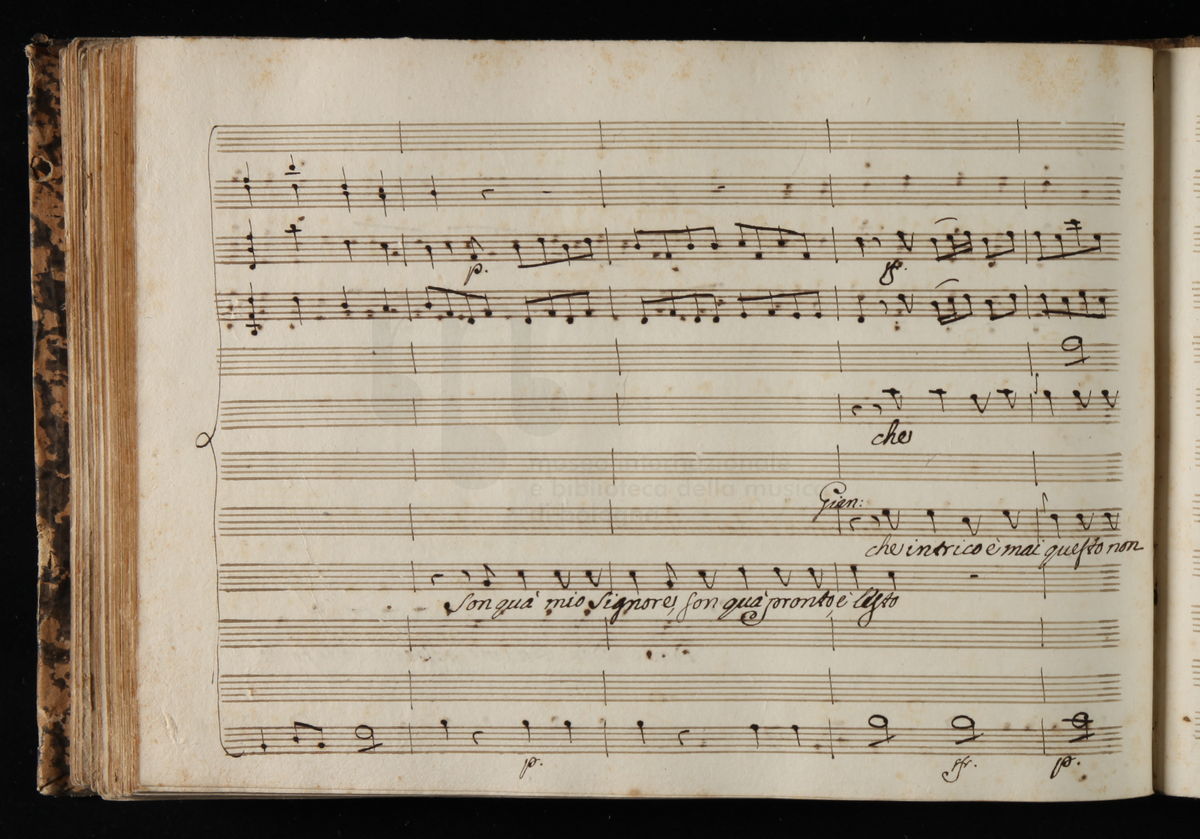 p.
sf.
che
museo internazionale
e biblioteca della musica
Gien:
che intrico è mai questo non
Son quà mio Signore, son quà pronto, è lesto
p.
sfr.
p.